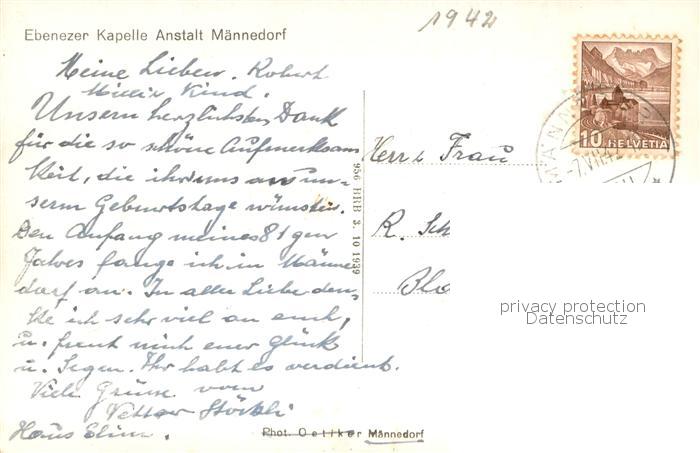 1942
Ebenezer Kapelle Anstalt Männedorf
Meine Lieben. Robert
Kind.
Unsern herzlichsten Dank
für die so schöne Aufmerksam
keit, die ihr uns an un-
serm Geburtstage wünsch
Den Anfang meines 81 gen
Jahres fange ich in Männe
dorf an. In aller Liebe den-
ke ich sehr viel an euch,
u. freut mich euer Glück
u. Segen. Ihr habt es verdient.
Viele Grüsse vom
Vetter Stöckli
Haus Elim.
956 BRB 3. 10 1939
Herr u Frau
R. Sch
10 HELVETIA
-7.VII.42
privacy protection
Datenschutz
Phot. Oetiker Männedorf